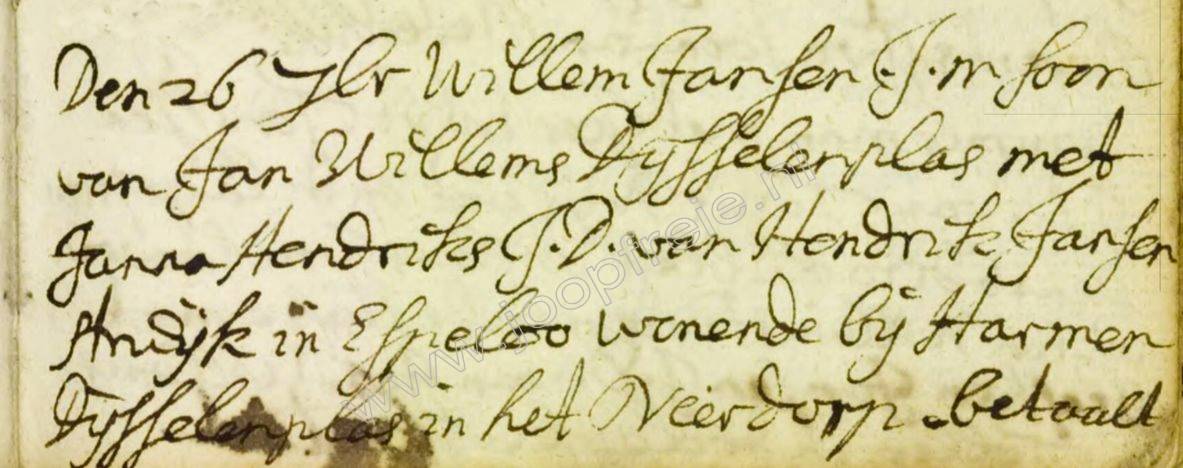 Den 26 7br Willem Jansen J.m soon
van Jan Willems Dijsselenplas met
Janna Hendriks J.D. van Hendrik Jansen
Andijk in Espeloo wonende bij Harmen
Dijsselenplas in het Neerdorp. betaalt
www.joopfreije.nl